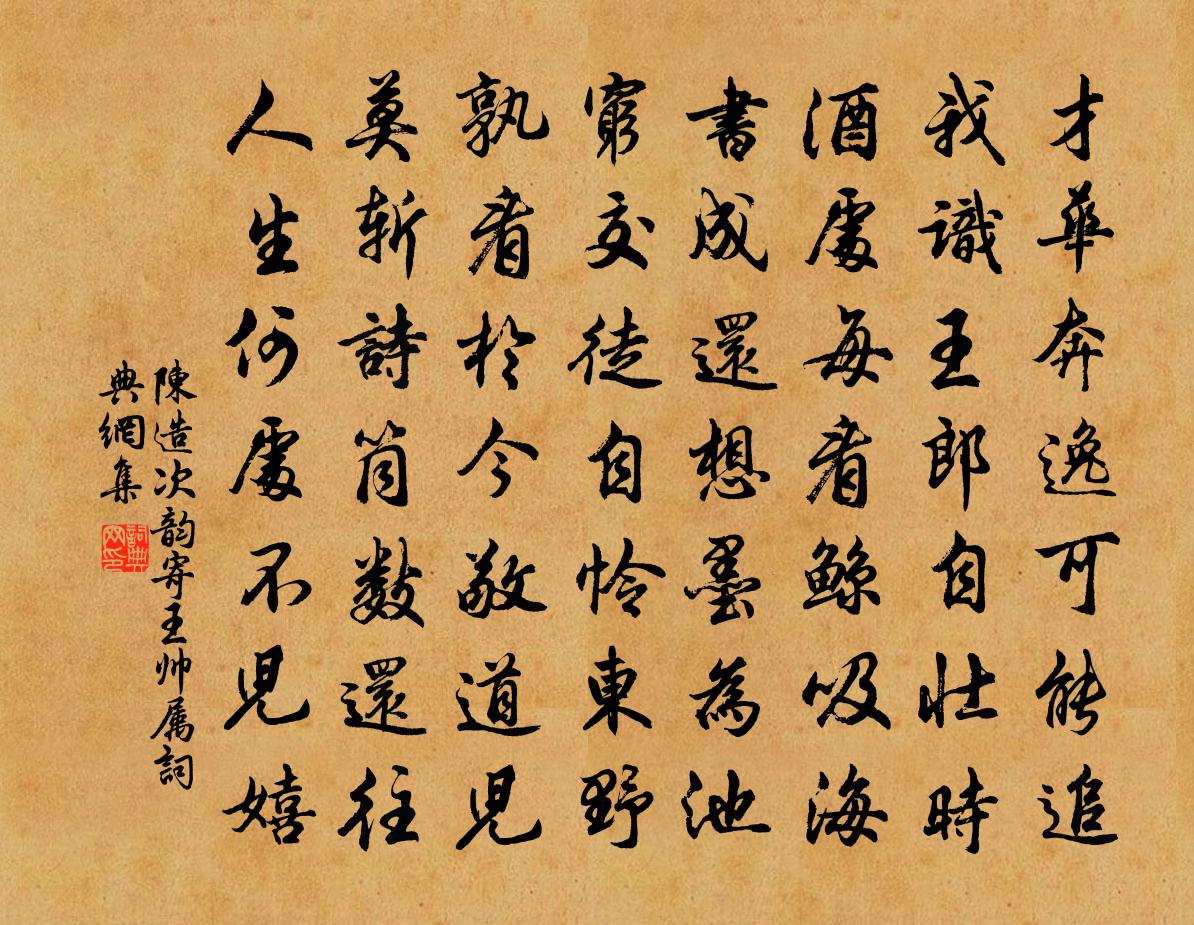 才華奔逸可能追
我識王郎自壯時
酒處每看鯨吸海
書成還想墨為池
窮交徒自怜東野
孰看於今敬道兒
莫斬詩筒數還往
人生何處不兒嬉
陳造次韵寄王帅属詞
典網集
詞典
网印